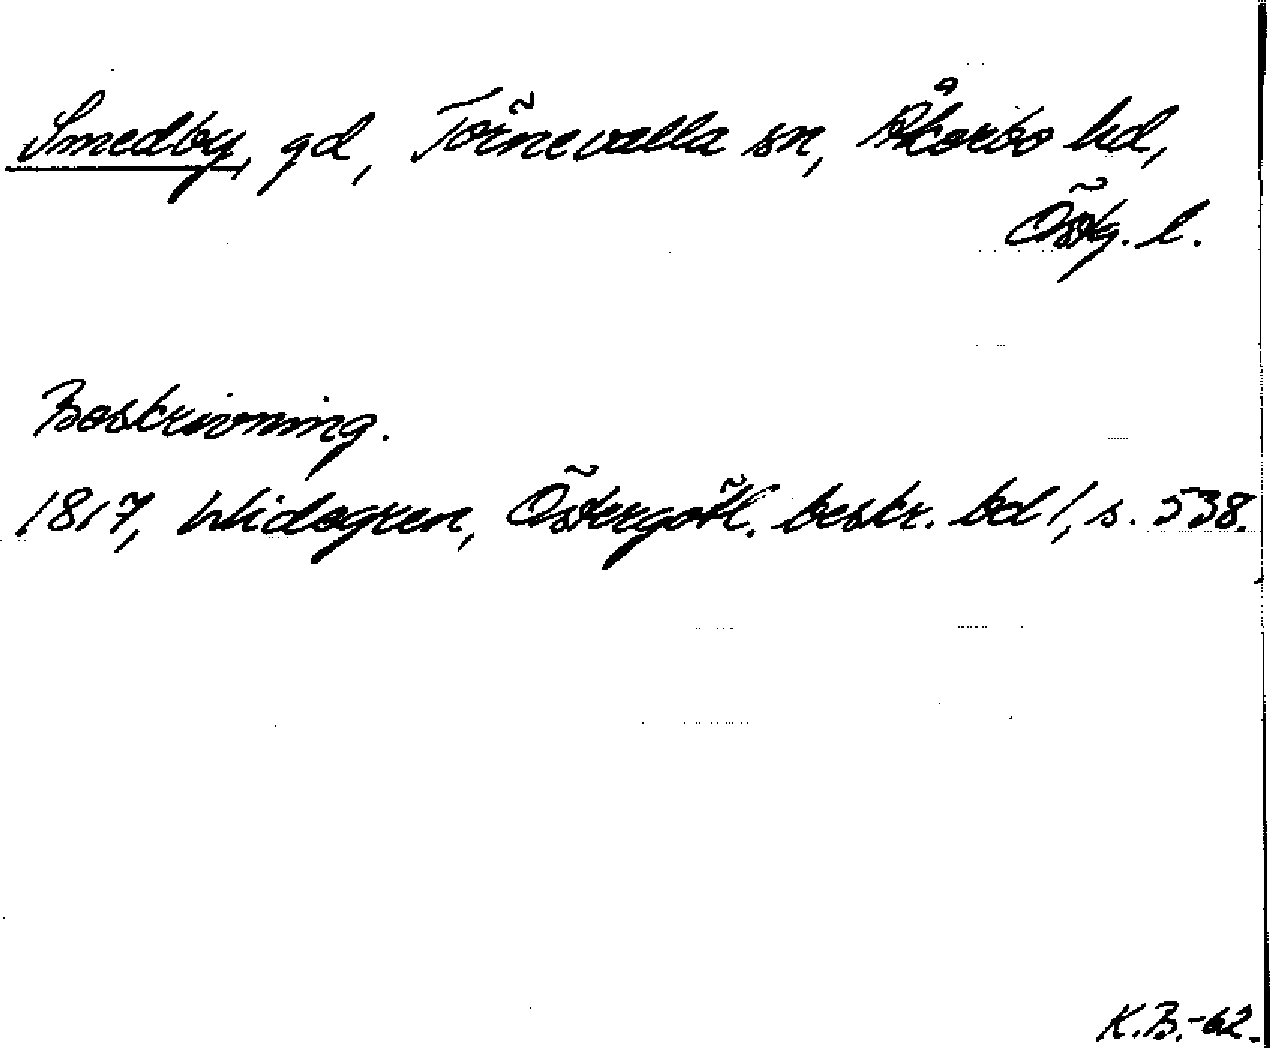 Smedby, gd, Törnevalla sn, Åkerbo hd,
Östg. l.
Beskrivning.
1817, Widegren, Östergötl. beskr. bd 1, s. 538.
K.B.-62.